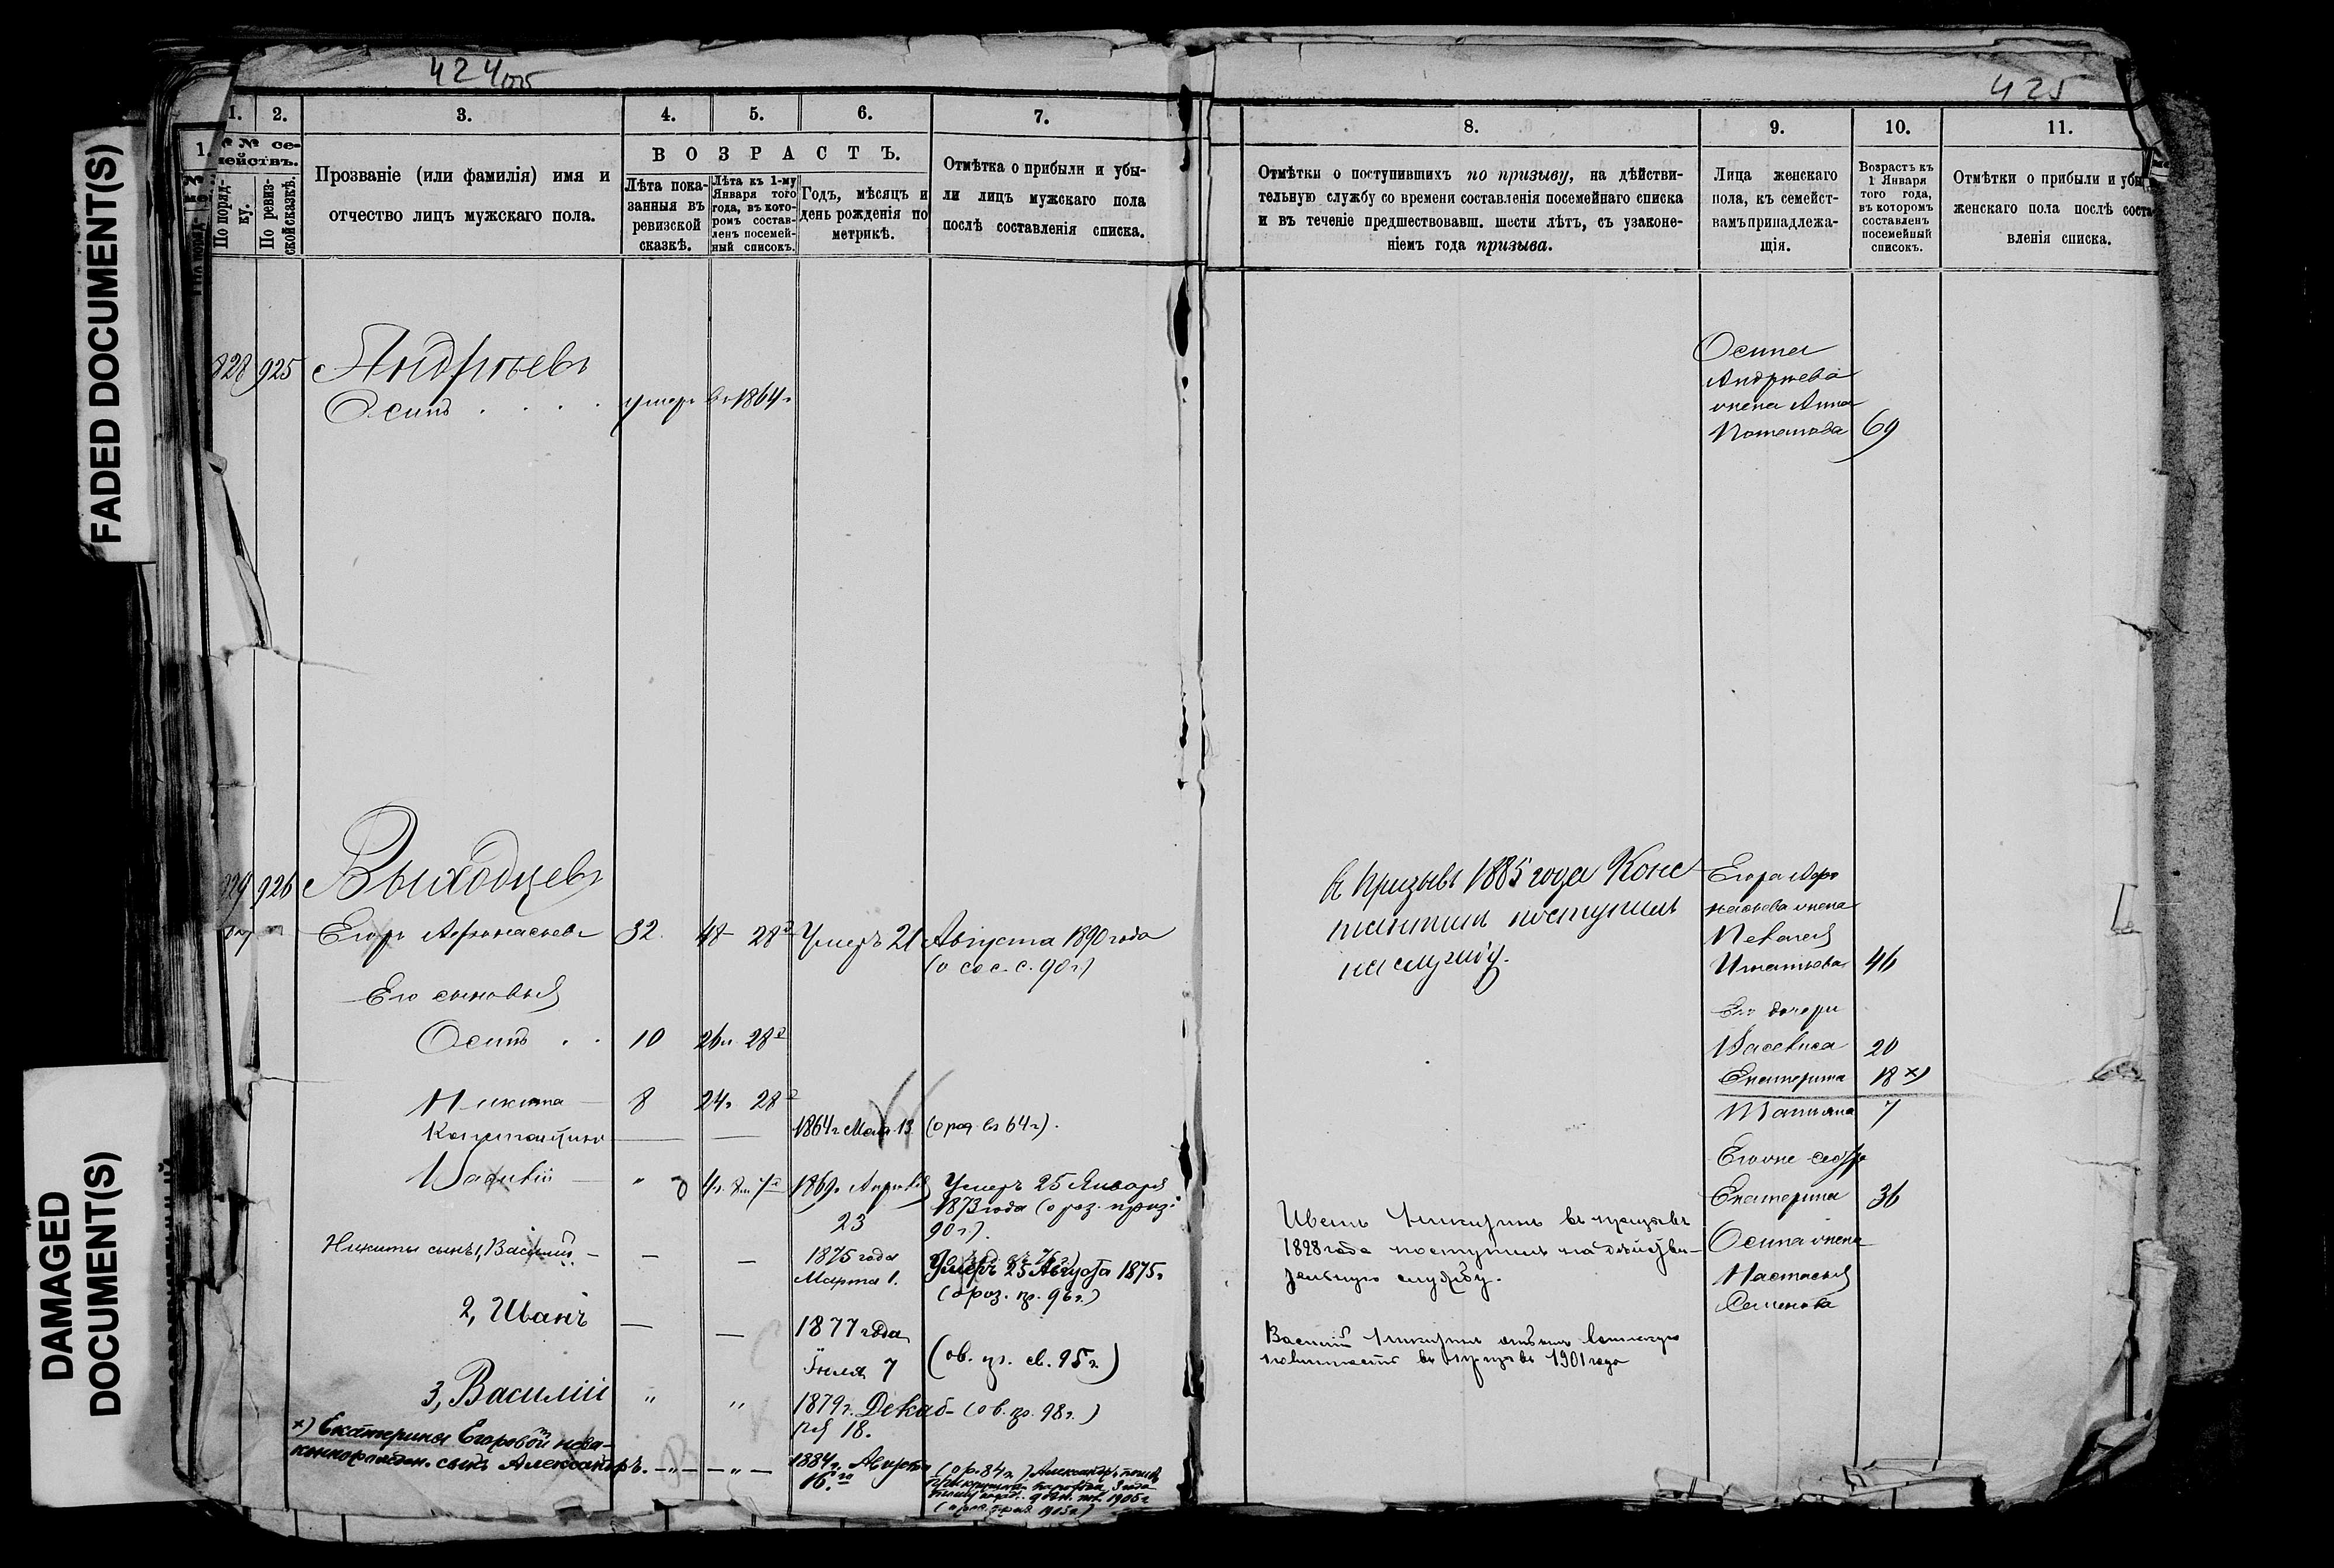 FADED DOCUMENT(S)
DAMAGED
DOCUMENT(S)
424об
1. 2. 3. 4. 5. 6. 7.
№№ се-
мействъ.
По поряд-
ку.
По ревиз-
ской сказкѣ.
Прозваніе (или фамилія) имя и
отчество лицъ мужскаго пола.
ВОЗРАСТЪ.
Лѣта пока-
занныя въ
ревизской
сказкѣ.
Лѣта къ 1-му
Января того
года, въ кото-
ромъ состав-
ленъ посемей-
ный списокъ.
Годъ, мѣсяцъ и
день рожденія по
метрикѣ.
Отмѣтка о прибыли и убы-
ли лицъ мужскаго пола
послѣ составленія списка.
828 925 Андреевъ
Осипъ умеръ въ 1864 г
829 926 Выходцевъ
Егоръ Афонасьевъ 32 48 28 Умеръ 21 Августа 1890 года
Его сыновья
Осипъ 10 26 28
Никита 8 24 28
Константинъ 1864 г Мая 13 (о род въ 64 г).
Василій 4 1869 Апреля 23 Умеръ 25 Января
1873 года
90 г).
Никиты сынъ 1, Василій 1875 года
Марта 1. Умеръ 25 Августа 1875 г
(о роз. пр. 96 г.)
2, Иванъ 1877 года
Іюля 7 (ов. пр. св. 95 г.)
3, Василій 1879 г. Декаб-
ря 18. (ов. пр. 98 г.)
х) Екатерины Егоровой неза-
коннорожден. сынъ Александръ. 1884 г. Августа
16го (о р. 84 г.) Александръ
425
8. 9. 10. 11.
Отмѣтки о поступившихъ по призыву, на дѣйстви-
тельную службу со времени составленія посемейнаго списка
и въ теченіе предшествовавш. шести лѣтъ, съ узаконе-
ніемъ года призыва.
Лица женскаго
пола, къ семейст-
вамъ принадлежа-
щія.
Возрастъ къ
1 Января
того года,
въ которомъ
составленъ
посемейный
списокъ.
Отмѣтки о прибыли и убы
женскаго пола послѣ соста-
вленія списка.
Осипа
Андреева
жена Анна
Потапова 69
въ призывъ 1885 года Конс
тантинъ поступилъ
на службу.
Егора Афо
насьева жена
Пелагея
Игнатьева 46
Его дочери
Васевиса 20
Екатерина 18 х)
Татьяна 7
Егоже сестра
Екатерина 36
Осипа жена
Настасья
Семенова
Иванъ Никитинъ въ призывъ
1898 года поступилъ на дѣйстви-
тельную службу.
Василій Никитинъ отбылъ воинскую
повинность въ призывъ 1901 года